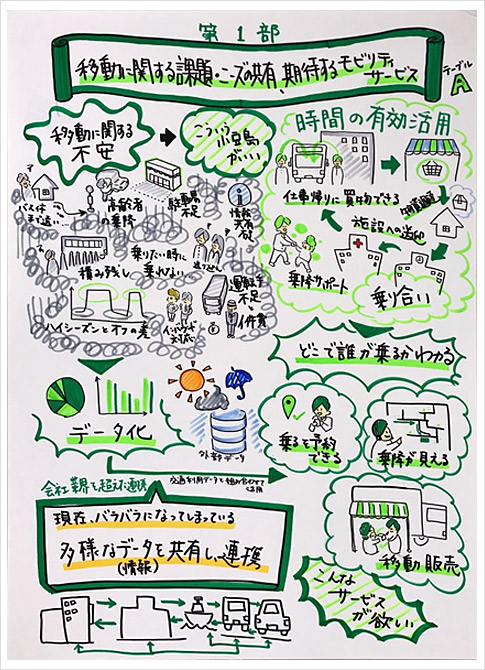 第1部
移動に関する課題・ニーズの共有、期待するモビリティ
サービス
テーブル
A
移動に関する
不安
こういう
小豆島
がいい
時間の有効活用
バス停
まで遠い…
高齢者
の乗降
駐車場
不足
情報
共有
不足
積み残し
乗りたい時に
乗れない
運転手
不足
ハイシーズンとオフの差
インバウンド
人件費
仕事帰りに買物できる
施設への送迎
乗降サポート
乗り合い
どこで誰が乗るかわかる
データ化
外部データ
乗ると予約
できる
乗降が見える
会社業界を超えた連携
交通利用データと組み合わせて
活用
現在、バラバラになってしまっている
多様なデータを共有し、連携
(情報)
移動販売
こんな
サービス
が欲しい